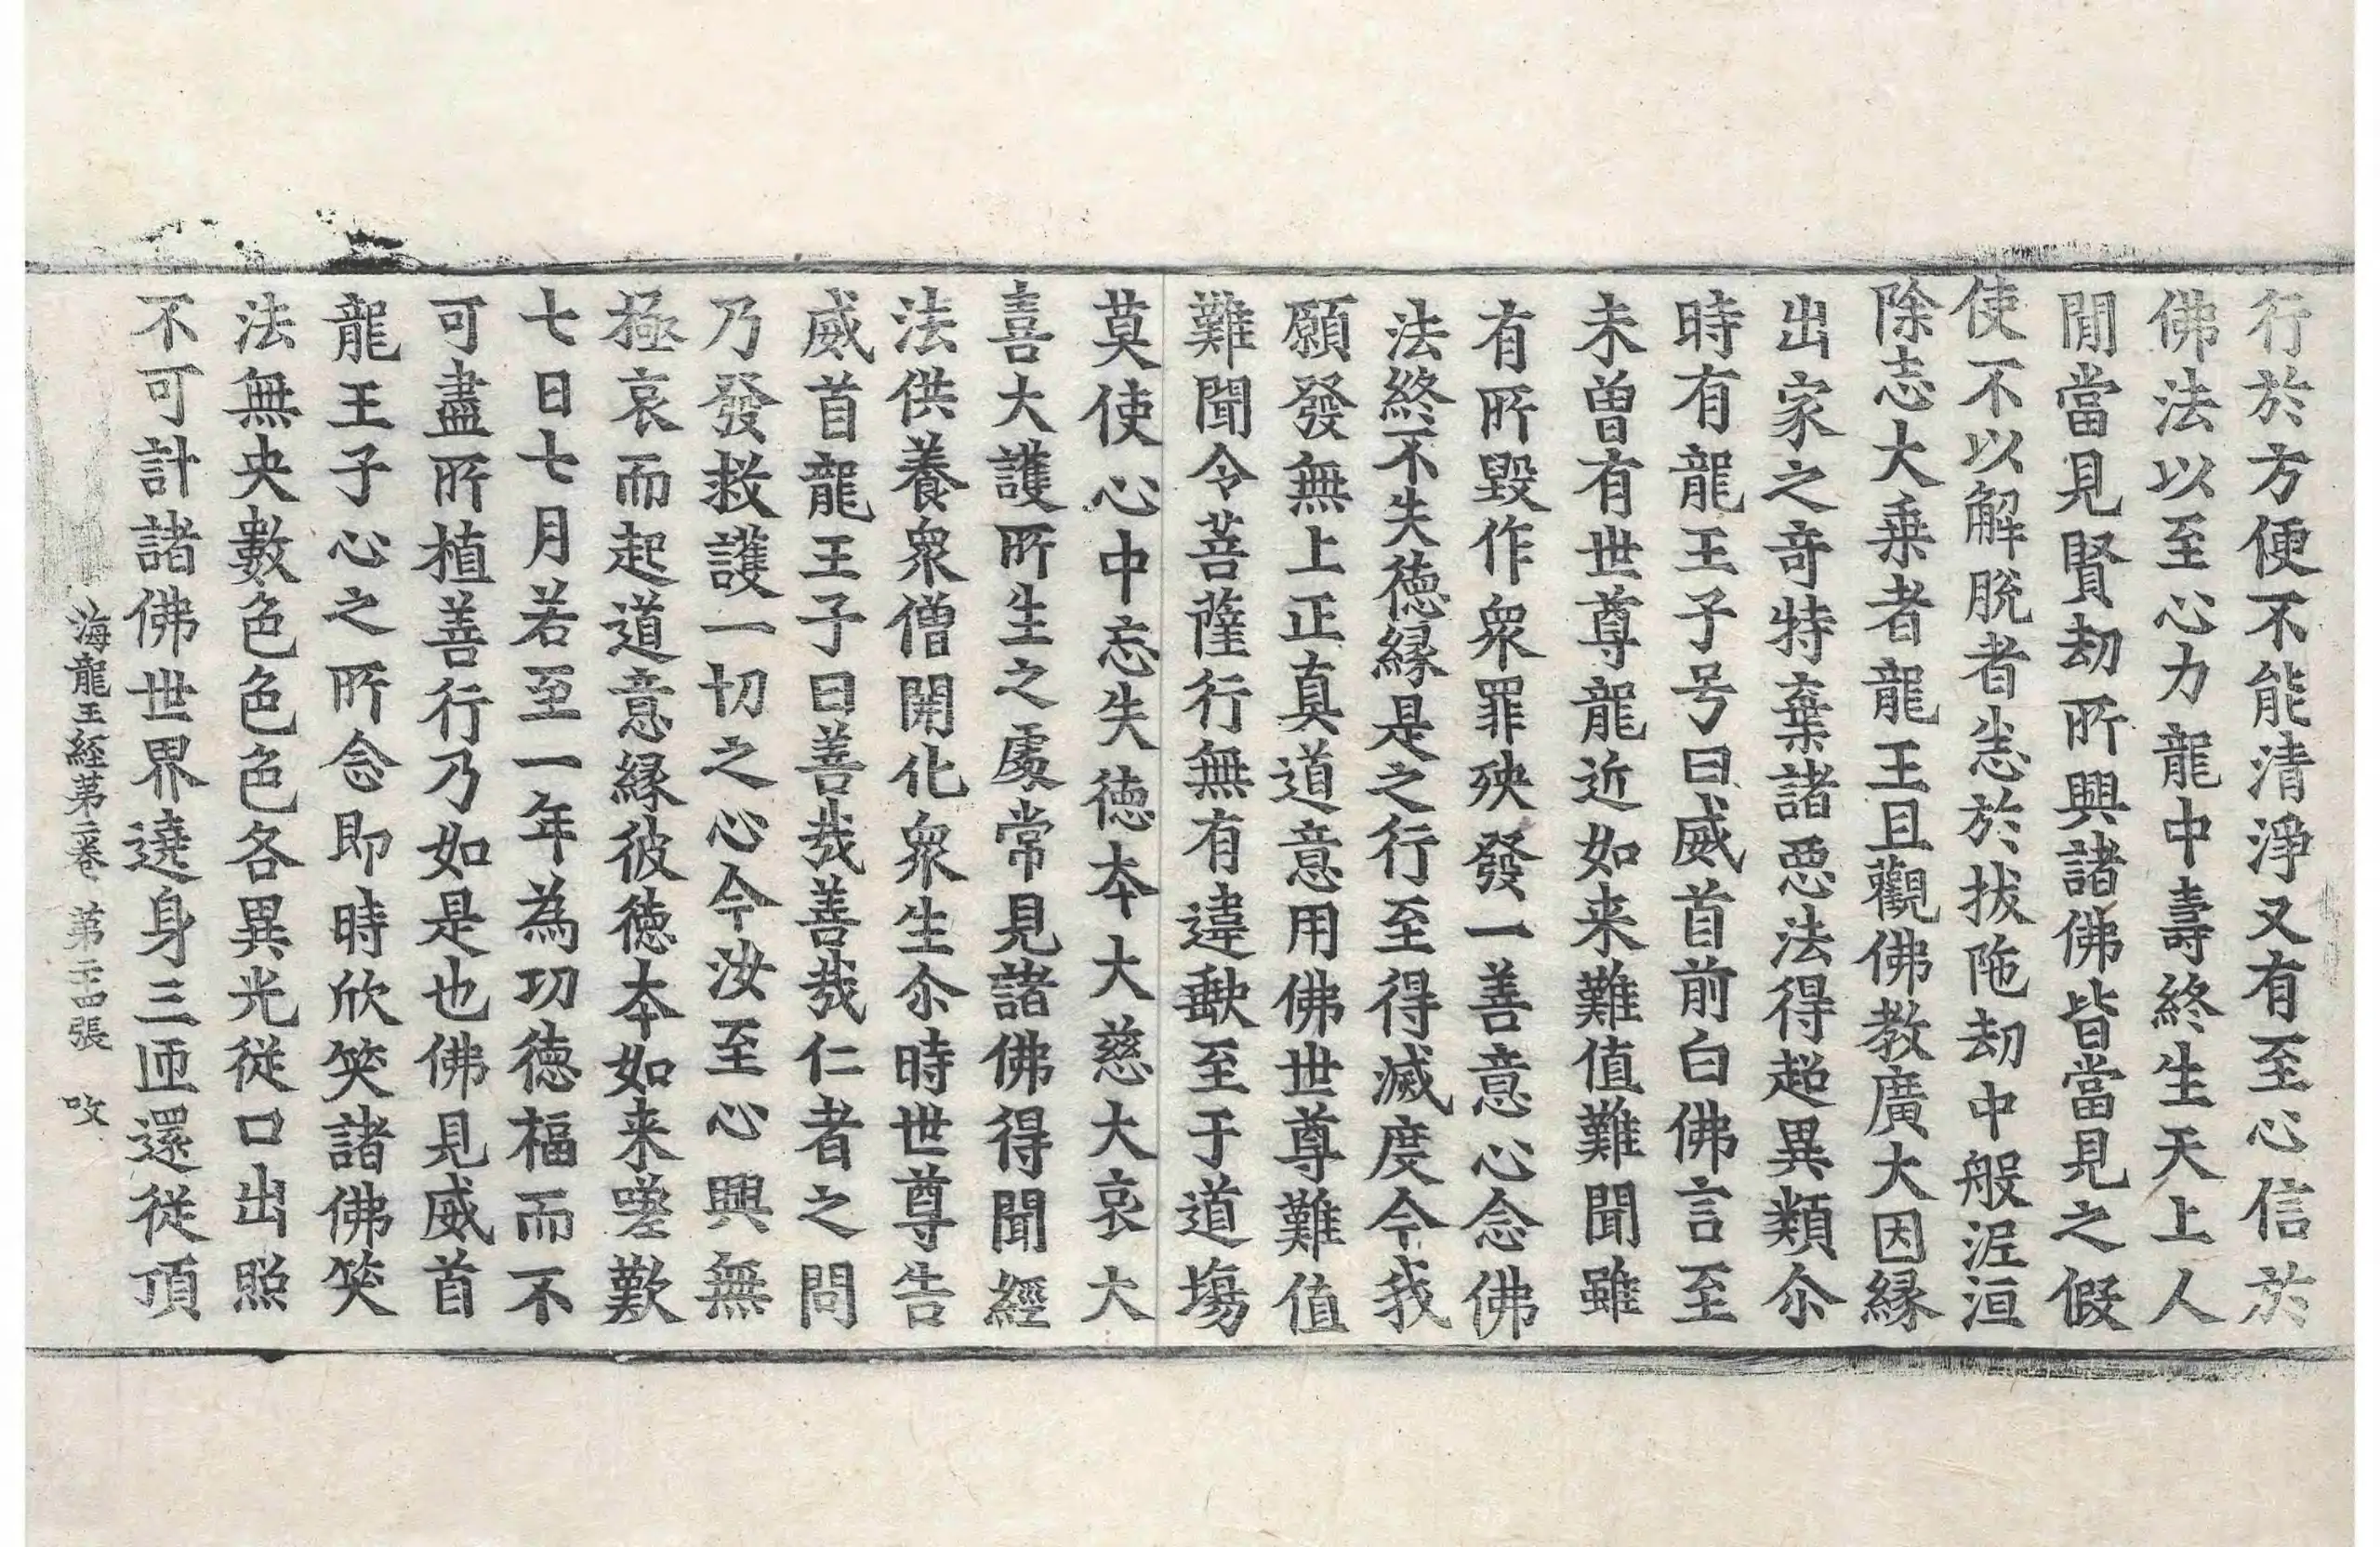 行於方便不能清淨又有至心信於
佛法以至心力龍中壽終生天上人
閒當見賢劫所興諸佛皆當見之假
使不以解脫者恙於拔陁劫中般泥洹
除志大乗者龍王且觀佛教廣大因縁
出家之竒特棄諸惡法得超異類尒
時有龍王子号曰威首前白佛言至
未曽有世尊龍近如来難值難聞雖
有所毀作衆罪殃發一善意心念佛
法終不失徳縁是之行至得滅度今我
願發無上正真道意用佛世尊難值
難聞令菩薩行無有違歑至于道場
莫使心中忘失徳夲大慈大哀大
喜大護所生之處常見諸佛得聞經
法供養衆僧開化衆生尒時世尊告
威首龍王子曰善哉善哉仁者之問
乃發救護一切之心今汝至心興無
極哀而起道意縁彼徳夲如来嗟歎
七日七月若至一年為功徳福而不
可盡所植善行乃如是也佛見威首
龍王子心之所念即時欣笑諸佛笑
法無央數色色色各異光従口出照
不可計諸佛世界遶身三匝還従頂
海龍王経苐二卷 第二十四張 㕮